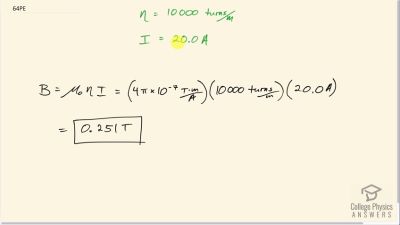 64PE
η = 10000 turns/m
I = 20.0 A
B = μ₀ η I = (4π × 10⁻⁷ T·m/A)(10000 turns/m)(20.0 A)
= 0.251 T
College Physics
ANSWERS